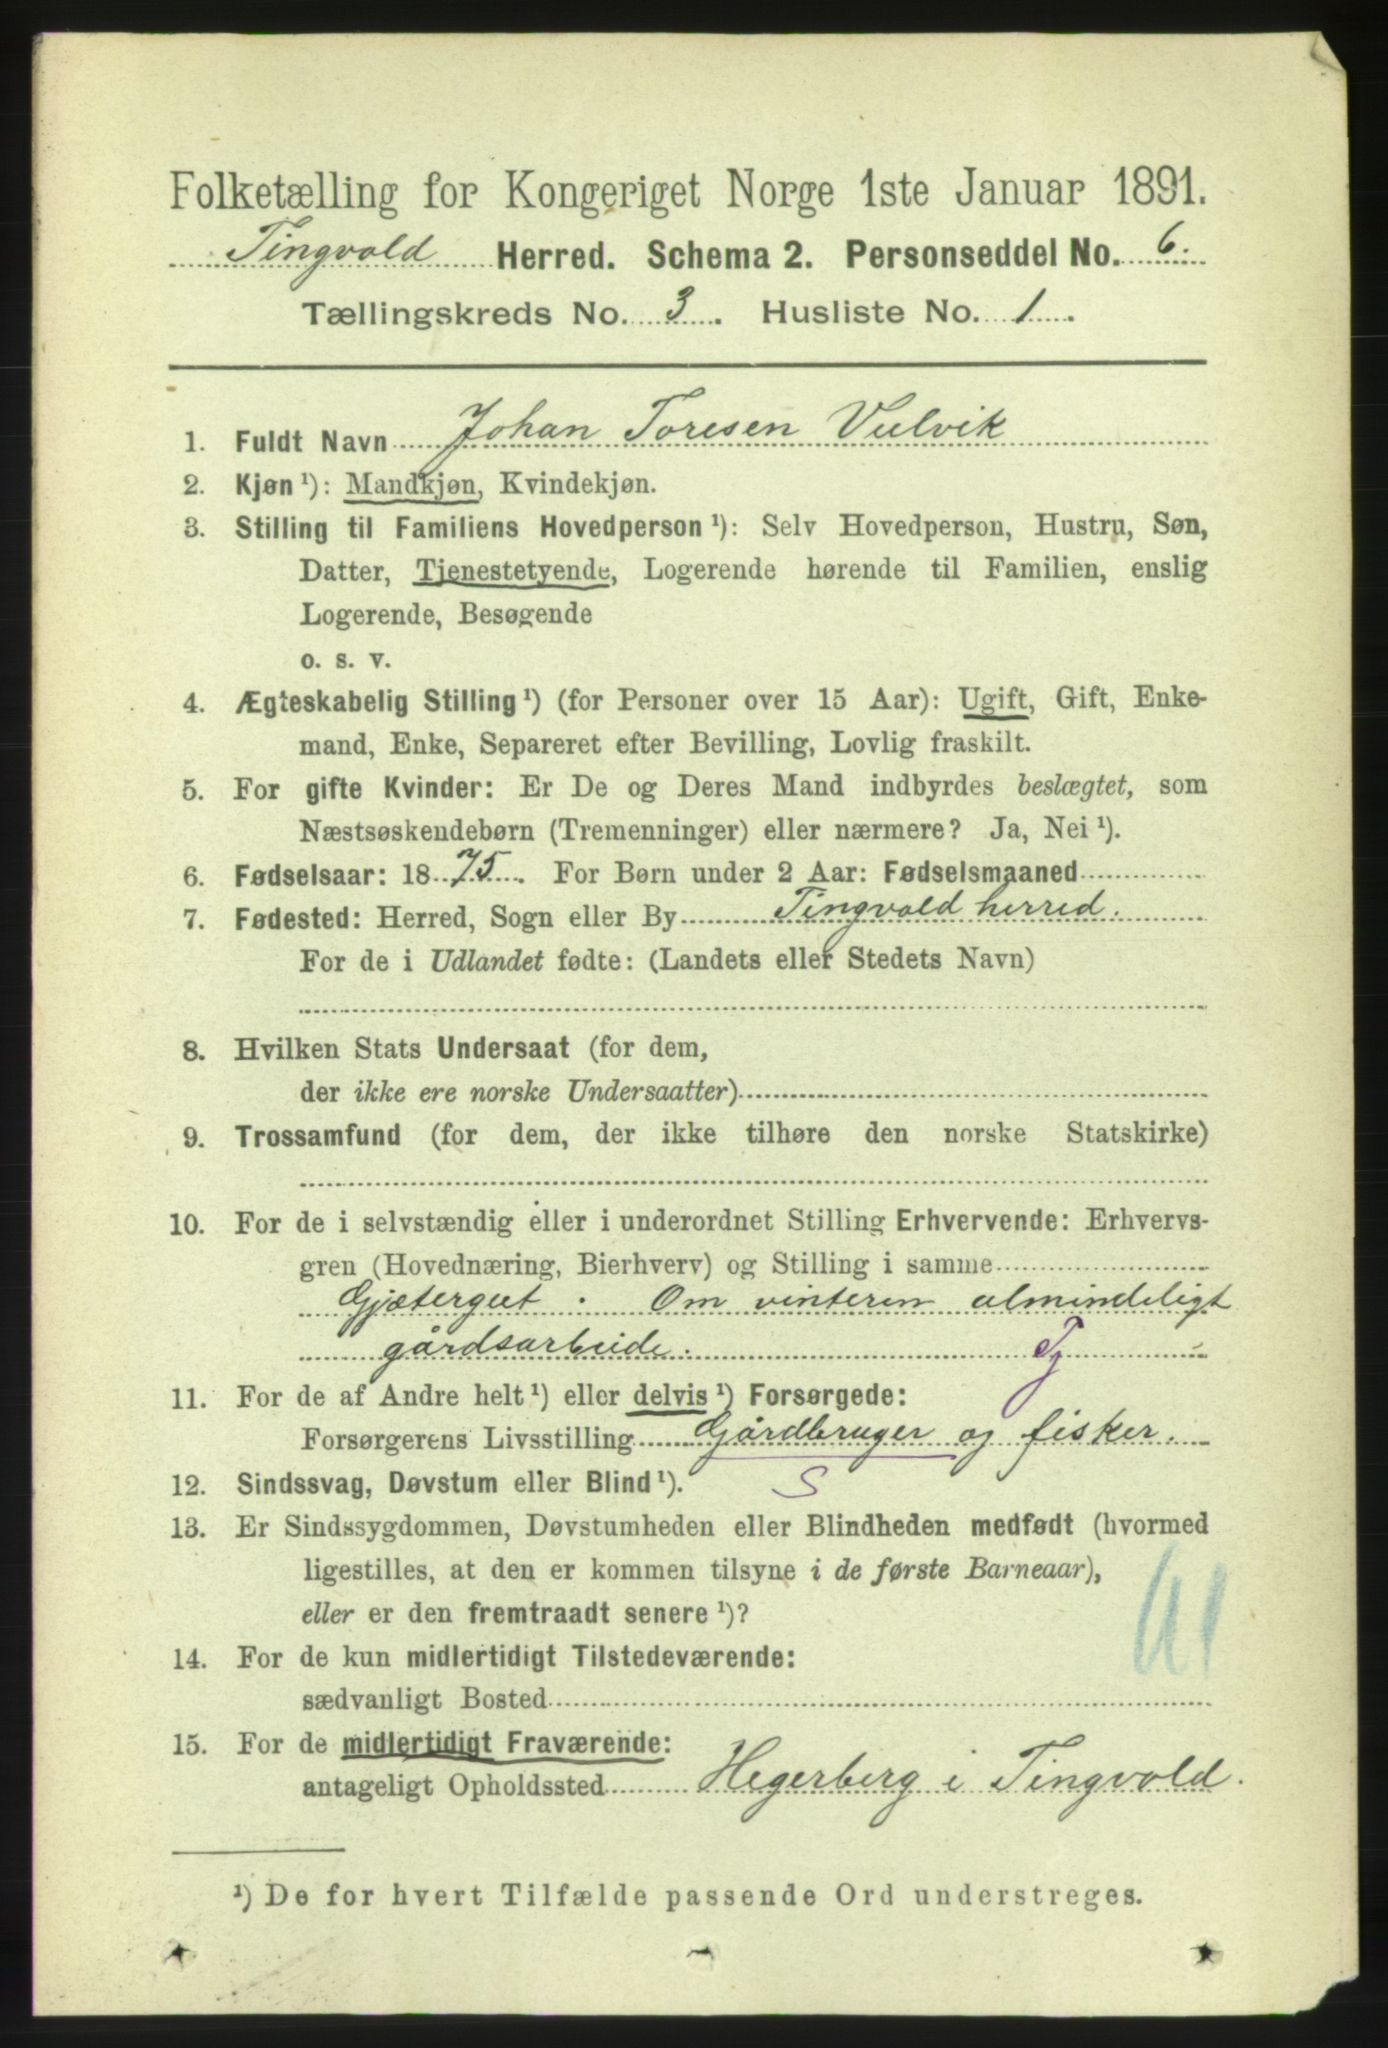 Folketælling for Kongeriget Norge 1ste Januar 1891.
Tingvold Herred. Schema 2. Personseddel No. 6.
Tællingskreds No. 3. Husliste No. 1.
1. Fuldt Navn Johan Toresen Vulvik
2. Kjøn ¹): Mandkjøn, Kvindekjøn.
3. Stilling til Familiens Hovedperson ¹): Selv Hovedperson, Hustru, Søn,
Datter, Tjenestetyende, Logerende hørende til Familien, enslig
Logerende, Besøgende
o. s. v.
4. Ægteskabelig Stilling ¹) (for Personer over 15 Aar): Ugift, Gift, Enke-
mand, Enke, Separeret efter Bevilling, Lovlig fraskilt.
5. For gifte Kvinder: Er De og Deres Mand indbyrdes beslægtet, som
Næstsøskendebørn (Tremenninger) eller nærmere? Ja, Nei ¹).
6. Fødselsaar: 1875. For Børn under 2 Aar: Fødselsmaaned
7. Fødested: Herred, Sogn eller By Tingvold herred.
For de i Udlandet fødte: (Landets eller Stedets Navn)
8. Hvilken Stats Undersaat (for dem,
der ikke ere norske Undersaatter)
9. Trossamfund (for dem, der ikke tilhøre den norske Statskirke)
10. For de i selvstændig eller i underordnet Stilling Erhvervende: Erhvervs-
gren (Hovednæring, Bierhverv) og Stilling i samme
Gjætergut. Om vinteren almindeligt
gårdsarbeide. Tj
11. For de af Andre helt ¹) eller delvis ¹) Forsørgede:
Forsørgerens Livsstilling Gårdbruger og fisker.
12. Sindssvag, Døvstum eller Blind ¹). S
13. Er Sindssygdommen, Døvstumheden eller Blindheden medfødt (hvormed
ligestilles, at den er kommen tilsyne i de første Barneaar),
eller er den fremtraadt senere ¹)?
14. For de kun midlertidigt Tilstedeværende:
sædvanligt Bosted
15. For de midlertidigt Fraværende:
antageligt Opholdssted Hegerberg i Tingvold.
¹) De for hvert Tilfælde passende Ord understreges.